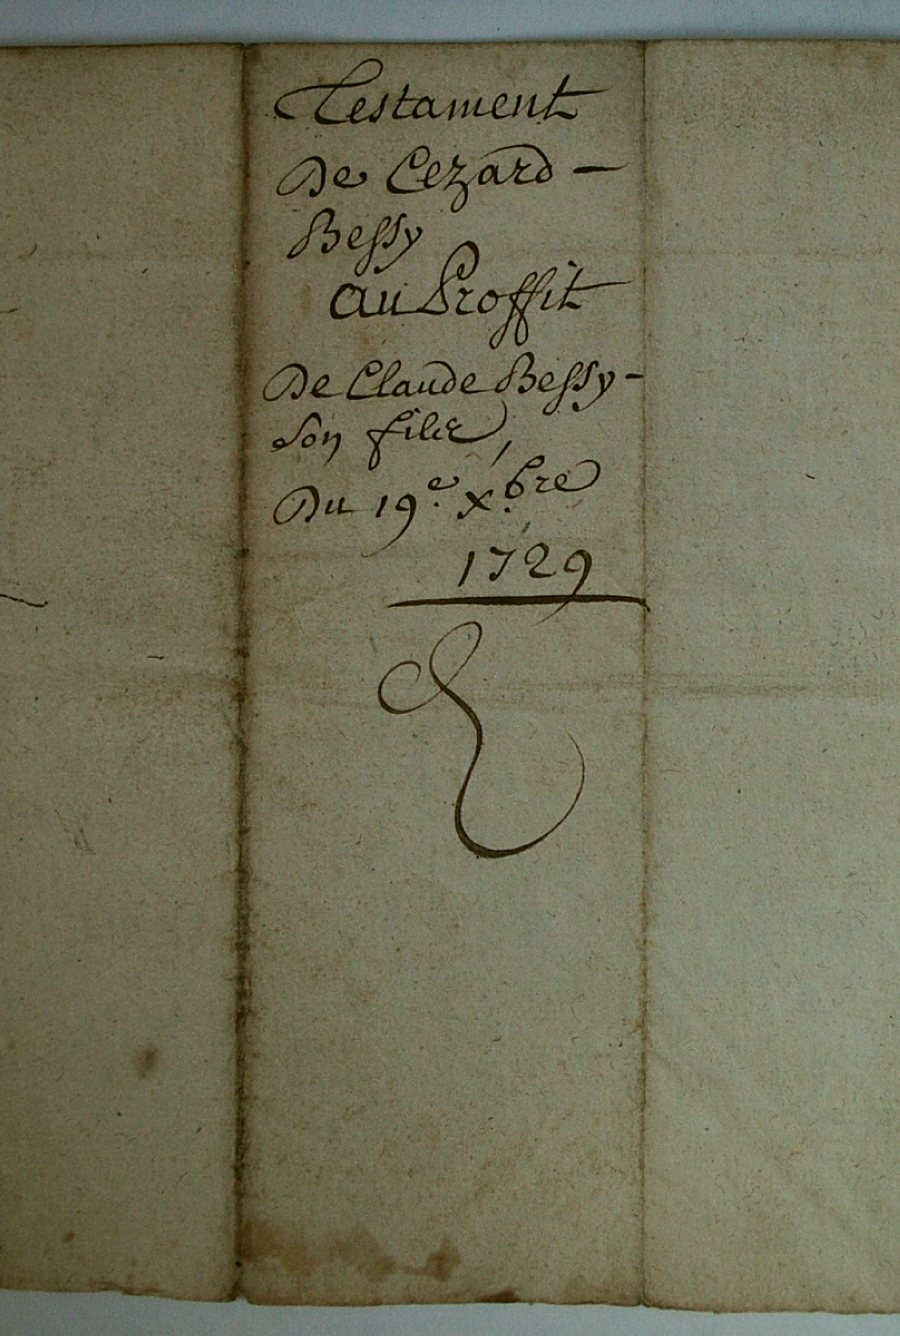 Testament
De Cezard –
Bessy
au Proffit
De Claude Bessy –
Son filz,
Du 19.e xbre
1729